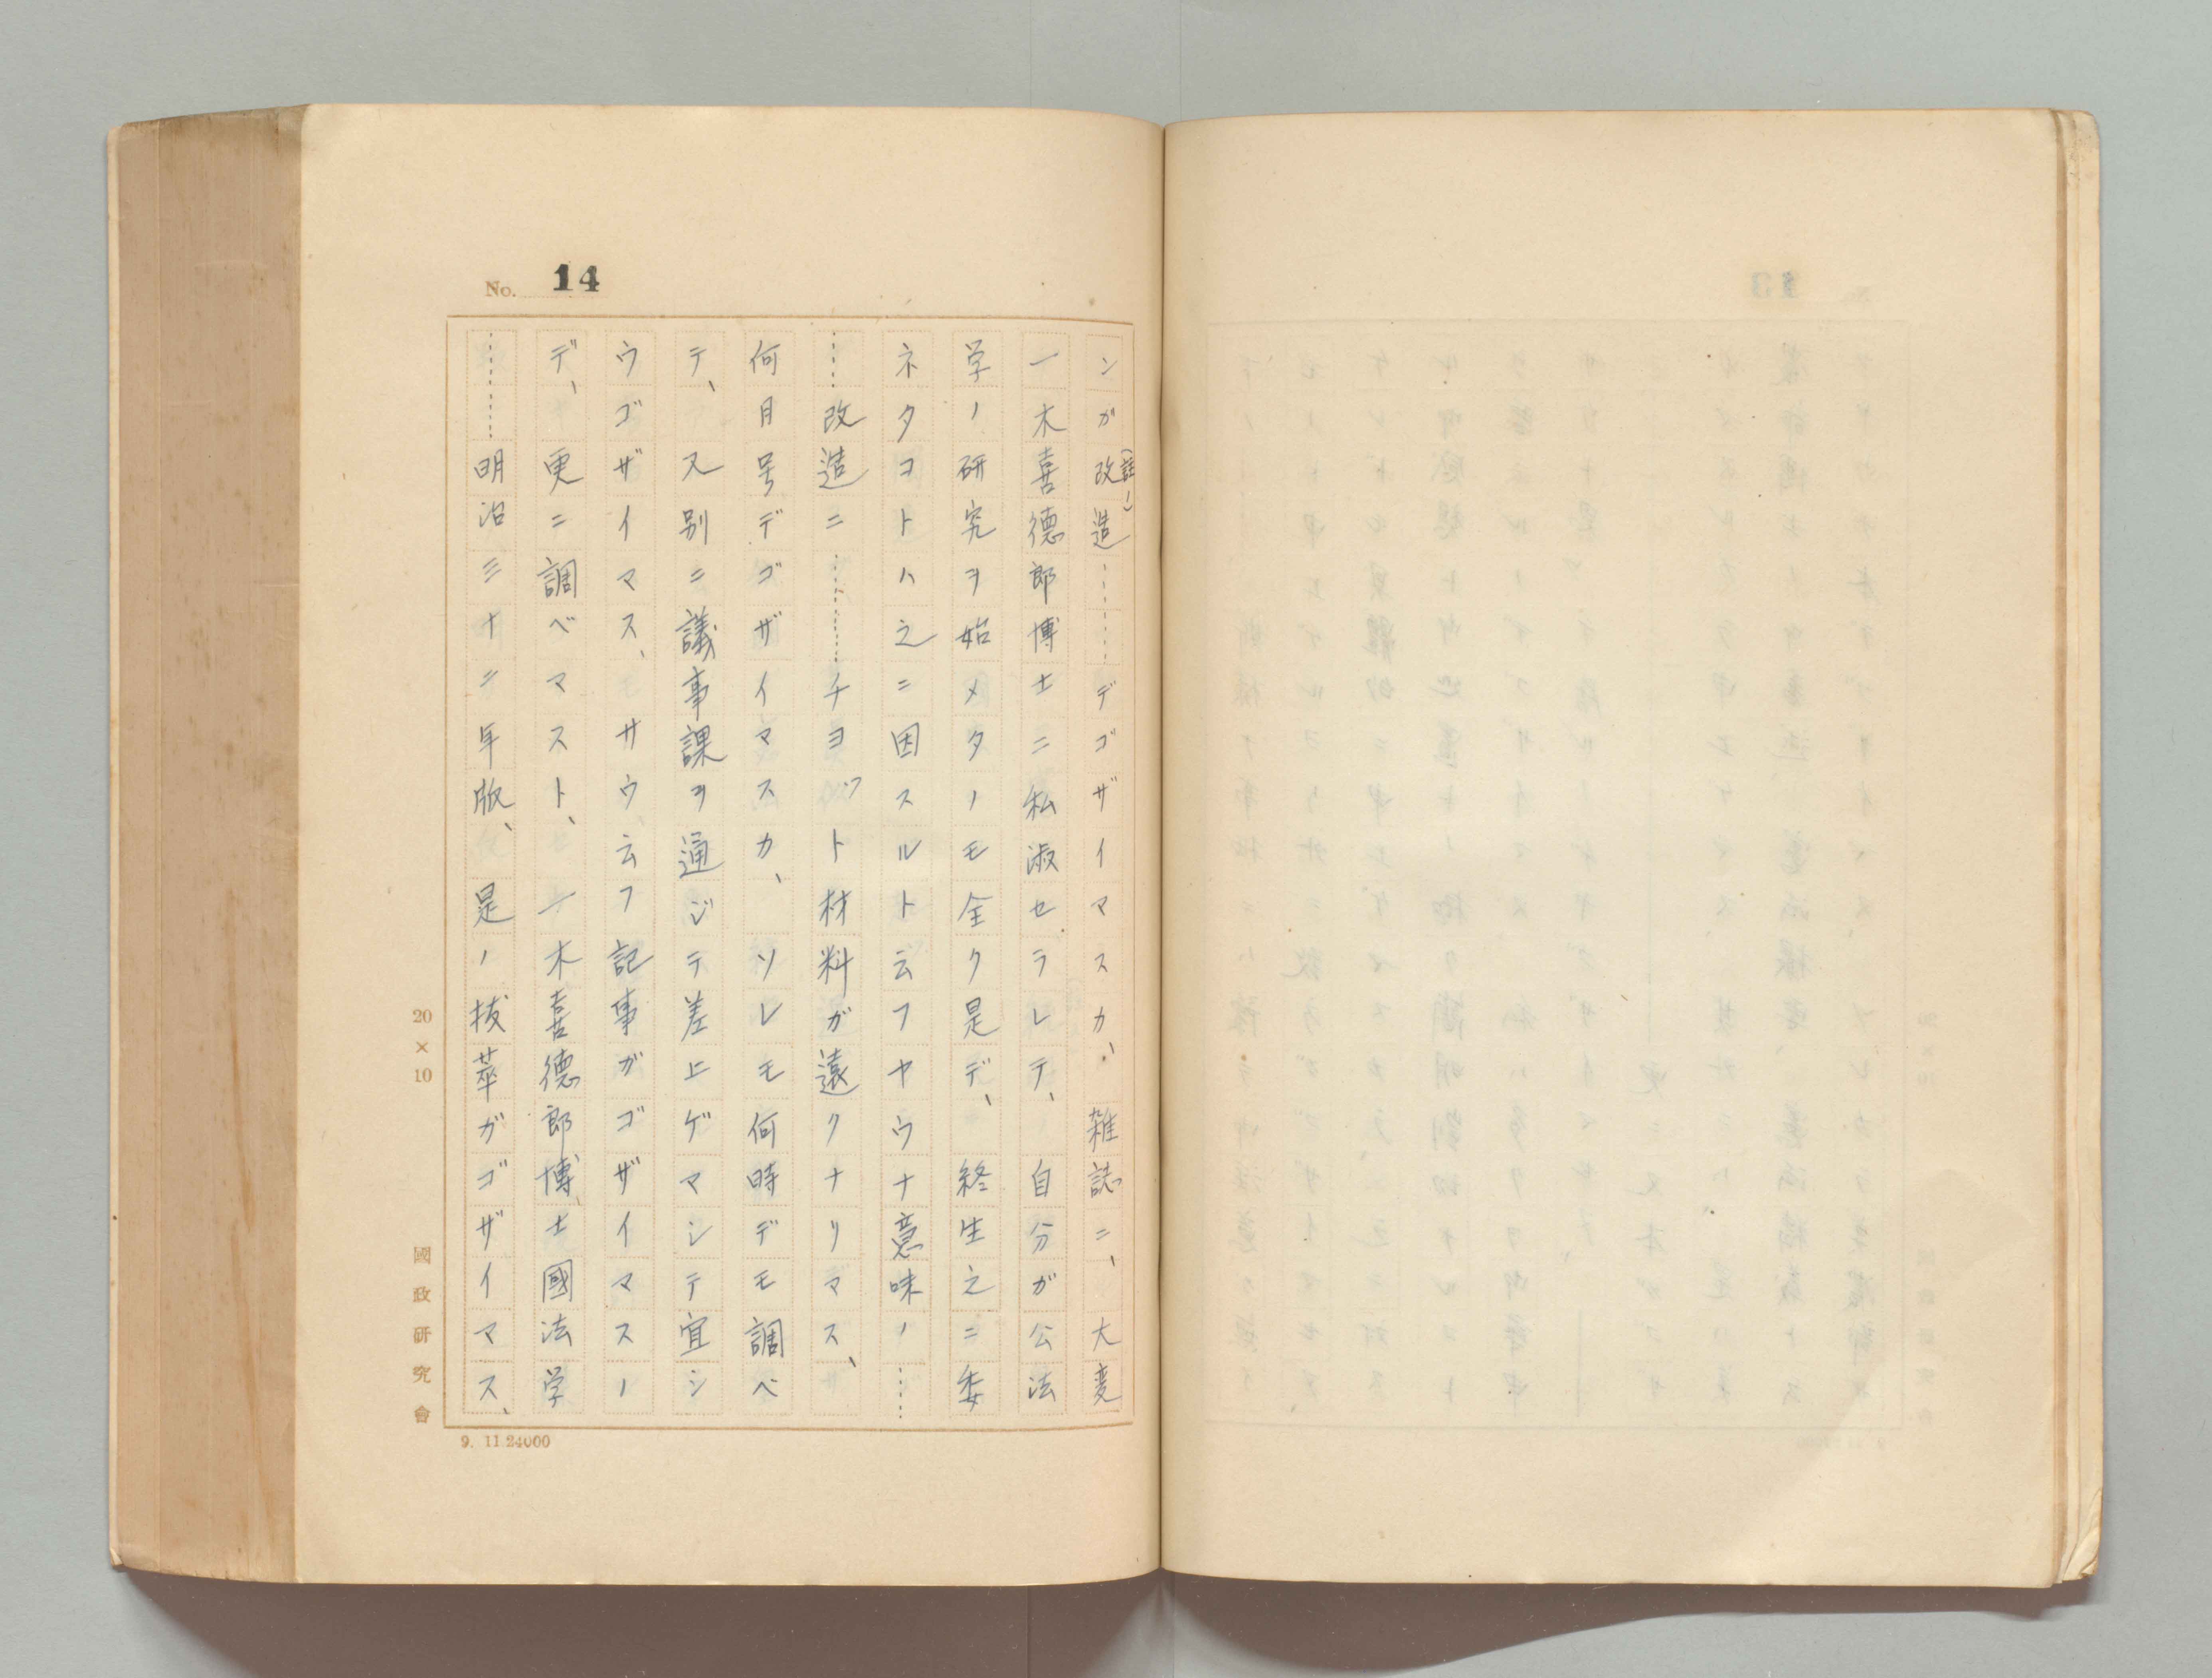 No. 14
ンガ改造…………デゴザイマスカ、雑誌ニ、大変
(註一)
一木喜徳郎博士ニ私淑セラレテ、自分ガ公法
学ノ研究ヲ始メタノモ全ク是デ、終生之ニ委
ネタコトハ之ニ因スルト云フヤウナ意味ノ……
……改造ニ…………チヨツト材料ガ遠クナリマス、
何月号デゴザイマスカ、ソレモ何時デモ調ベ
テ、又別ニ議事課ヲ通ジテ差上ゲマシテ宜シ
ウゴザイマス、サウ云フ記事ガゴザイマスノ
デ、更ニ調ベマスト、一木喜徳郎博士國法学
…………明治三十二年版、是ノ抜萃ガゴザイマス、
20×10
國政研究會
9. 11.24000